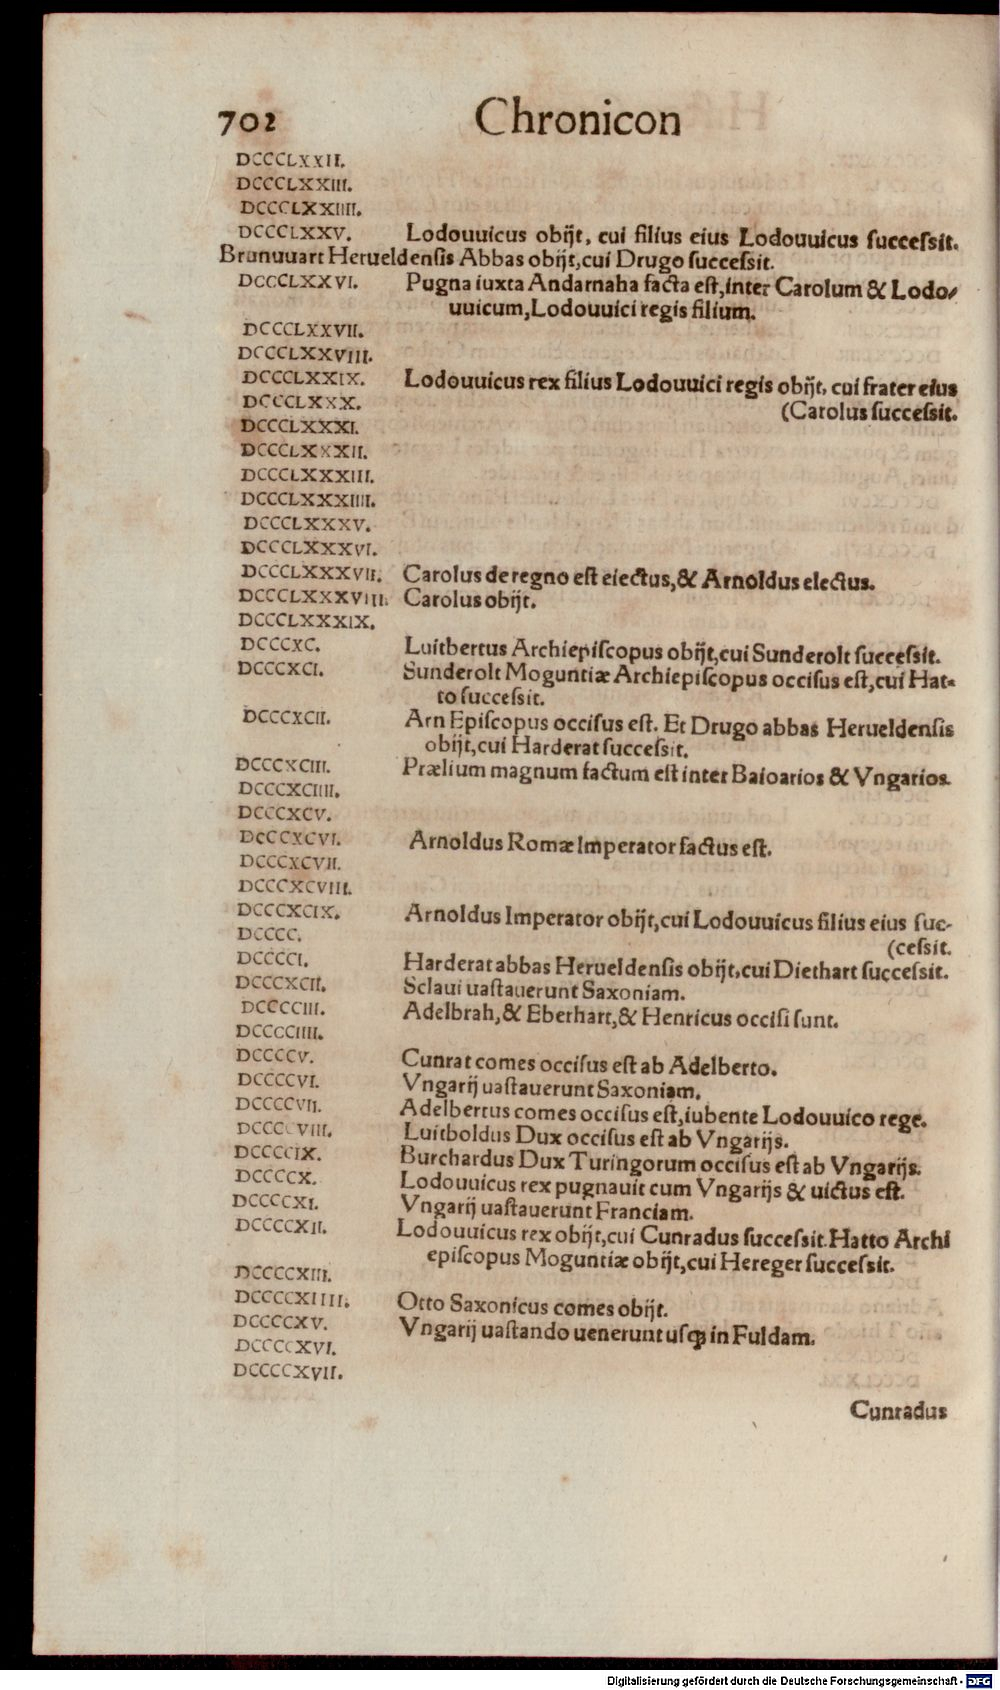 702 Chronicon
DCCCLXXII.
DCCCLXXIII.
DCCCLXXIIII.
DCCCLXXV. Lodouuicus obijt, cui filius eius Lodouuicus ſucceſsit.
Brunuuart Herueldenſis Abbas obijt, cui Drugo ſucceſsit.
DCCCLXXVI. Pugna iuxta Andarnaha facta eſt, inter Carolum & Lodo/
uuicum, Lodouuici regis filium.
DCCCLXXVII.
DCCCLXXVIII.
DCCCLXXIX. Lodouuicus rex filius Lodouuici regis obijt, cui frater eius
DCCCLXXX. (Carolus ſucceſsit.
DCCCLXXXI.
DCCCLXXXII.
DCCCLXXXIII.
DCCCLXXXIIII.
DCCCLXXXV.
DCCCLXXXVI.
DCCCLXXXVII. Carolus de regno eſt eiectus, & Arnoldus electus.
DCCCLXXXVIII. Carolus obijt.
DCCCLXXXIX.
DCCCXC. Luitbertus Archiepiſcopus obijt, cui Sunderolt ſucceſsit.
DCCCXCI. Sunderolt Moguntiæ Archiepiſcopus occiſus eſt, cui Hat=
to ſucceſsit.
DCCCXCII. Arn Epiſcopus occiſus eſt. Et Drugo abbas Herueldenſis
obijt, cui Harderat ſucceſsit.
DCCCXCIII. Prælium magnum factum eſt inter Baioarios & Vngarios.
DCCCXCIIII.
DCCCXCV.
DCCCXCVI. Arnoldus Romæ Imperator factus eſt.
DCCCXCVII.
DCCCXCVIII.
DCCCXCIX. Arnoldus Imperator obijt, cui Lodouuicus filius eius ſuc-
DCCCC. (ceſsit.
DCCCCI. Harderat abbas Herueldenſis obijt, cui Diethart ſucceſsit.
DCCCXCII. Sclaui uaſtauerunt Saxoniam.
DCCCCIII. Adelbrah, & Eberhart, & Henricus occiſi ſunt.
DCCCCIIII.
DCCCCV. Cunrat comes occiſus eſt ab Adelberto.
DCCCCVI. Vngarij uaſtauerunt Saxoniam.
DCCCCVII. Adelbertus comes occiſus eſt, iubente Lodouuico rege.
DCCCCVIII. Luitboldus Dux occiſus eſt ab Vngarijs.
DCCCCIX. Burchardus Dux Turingorum occiſus eſt ab Vngarijs.
DCCCCX. Lodouuicus rex pugnauit cum Vngarijs & uictus eſt.
DCCCCXI. Vngarij uaſtauerunt Franciam.
DCCCCXII. Lodouuicus rex obijt, cui Cunradus ſucceſsit. Hatto Archi
epiſcopus Moguntiæ obijt, cui Hereger ſucceſsit.
DCCCCXIII.
DCCCCXIIII. Otto Saxonicus comes obijt.
DCCCCXV. Vngarij uaſtando uenerunt uſqꝫ in Fuldam.
DCCCCXVI.
DCCCCXVII.
Cunradus
Digitalisierung gefördert durch die Deutsche Forschungsgemeinschaft - DFG